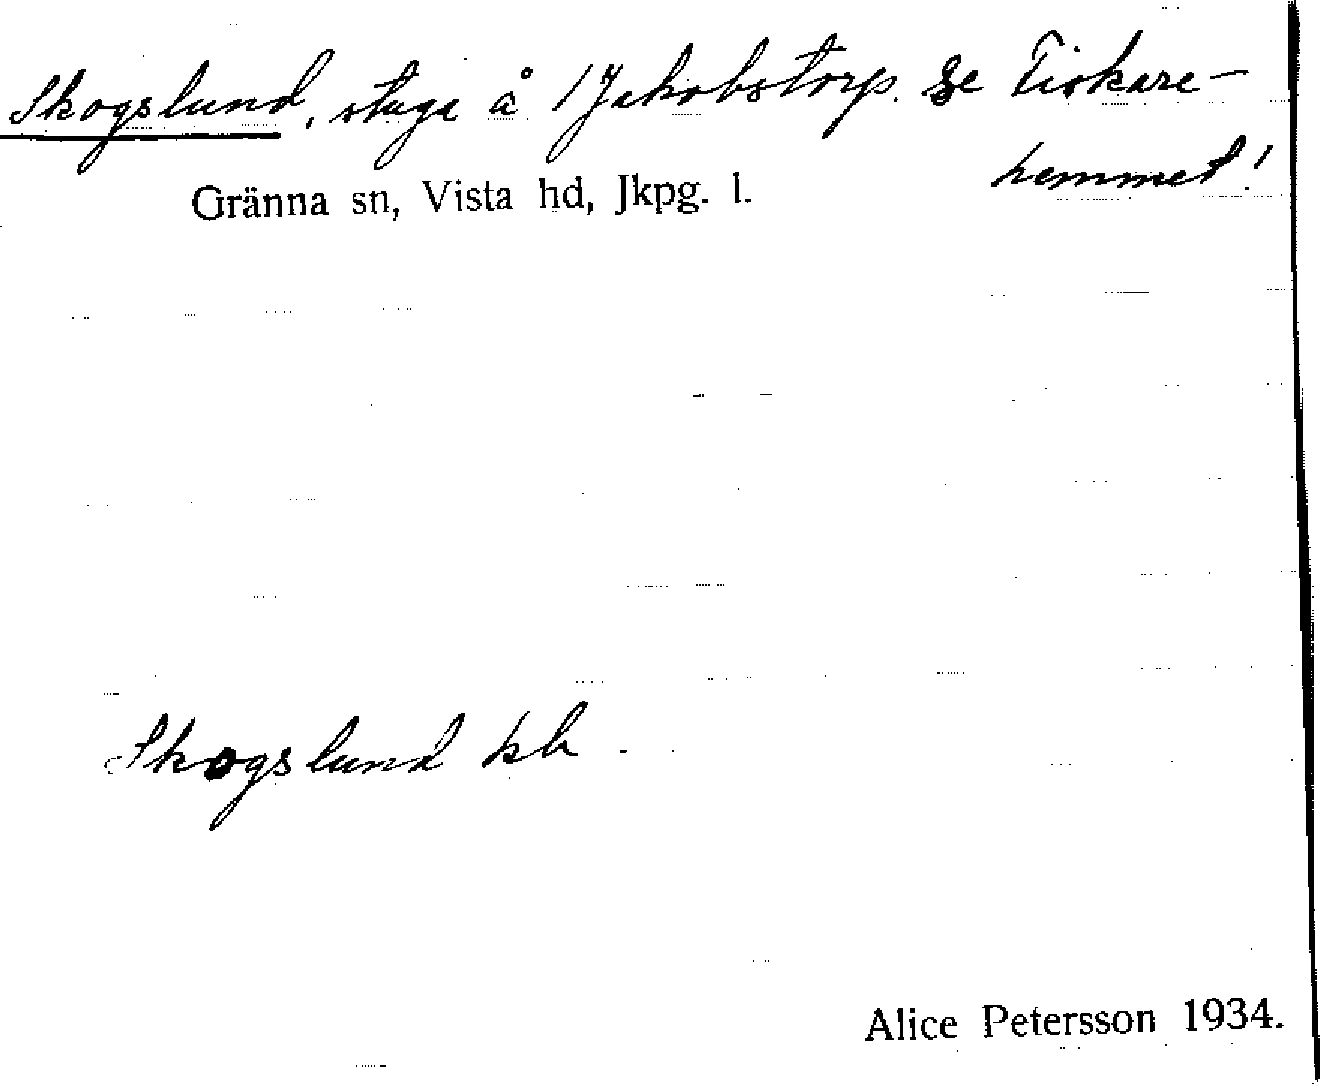 Skogslund, stuga å 1 Jakobstorp. Se Fiskare-
hemmet!
Gränna sn, Vista hd, Jkpg. l.
Skogslund kb
Alice Petersson 1934.